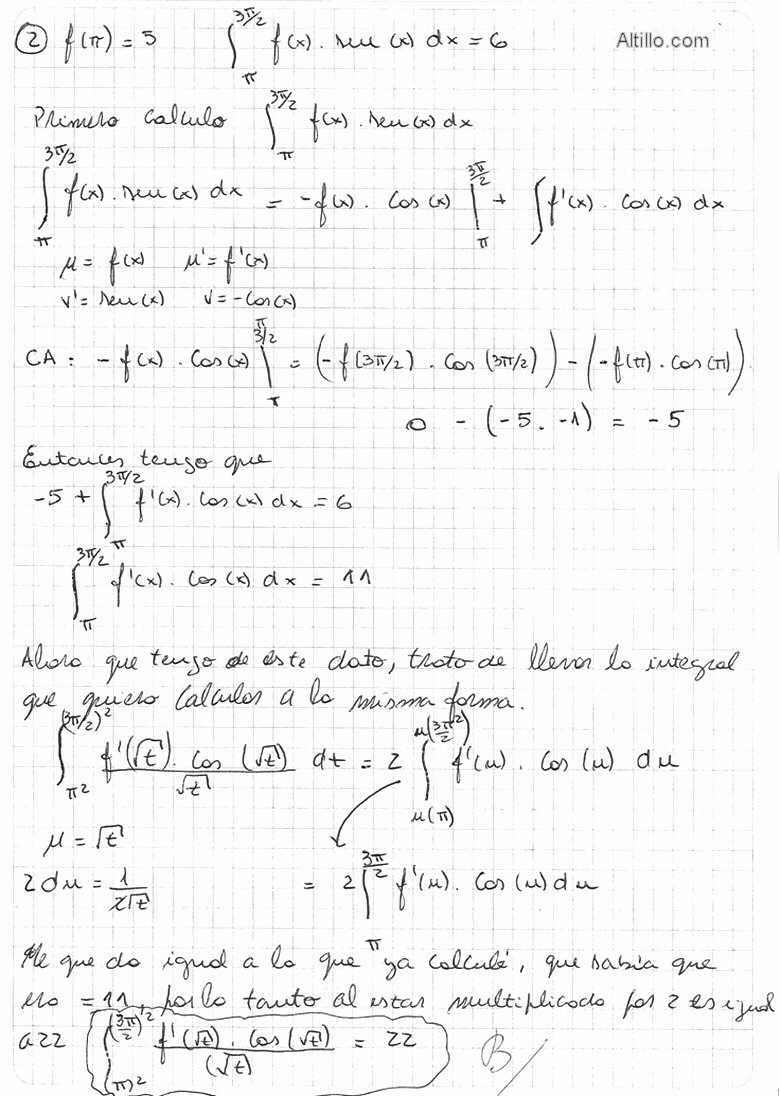 ② f(π) = 5 ∫_π^{3π/2} f(x) . sen (x) dx = 6 Altillo.com
Primero calculo ∫_π^{3π/2} f(x) . sen(x) dx
∫_π^{3π/2} f(x) . sen(x) dx = -f(x) . Cos (x) |_π^{3π/2} + ∫ f'(x) . cos(x) dx
μ = f(x) μ' = f'(x)
v' = sen(x) v = -Cos(x)
CA : - f(x) . Cos(x) |_π^{π 3/2} = (-f(3π/2) . Cos (3π/2)) - (-f(π) . Cos(π))
0 - (-5 . -1) = -5
Entonces tengo que
-5 + ∫_π^{3π/2} f'(x) . Cos (x) dx = 6
∫_π^{3π/2} f'(x) . Cos (x) dx = 11
Ahora que tengo de este dato, trato de llevar la integral
que quiero calcular a la misma forma.
∫_{π²}^{(3π/2)²} f'(√t) . cos (√t) / √t dt = 2 ∫_{μ(π)}^{μ(3π/2 ²)} f'(μ) . Cos (μ) dμ
μ = √t
2 dμ = 1/2√t = 2 ∫_π^{3π/2} f'(μ) . Cos (μ) dμ
Me queda igual a lo que ya calculé, que sabía que
era = 11, por lo tanto al estar multiplicado por 2 es igual
a 22 ∫_{(π)²}^{(3π/2)²} f'(√t) . cos(√t) / (√t) = 22 B/